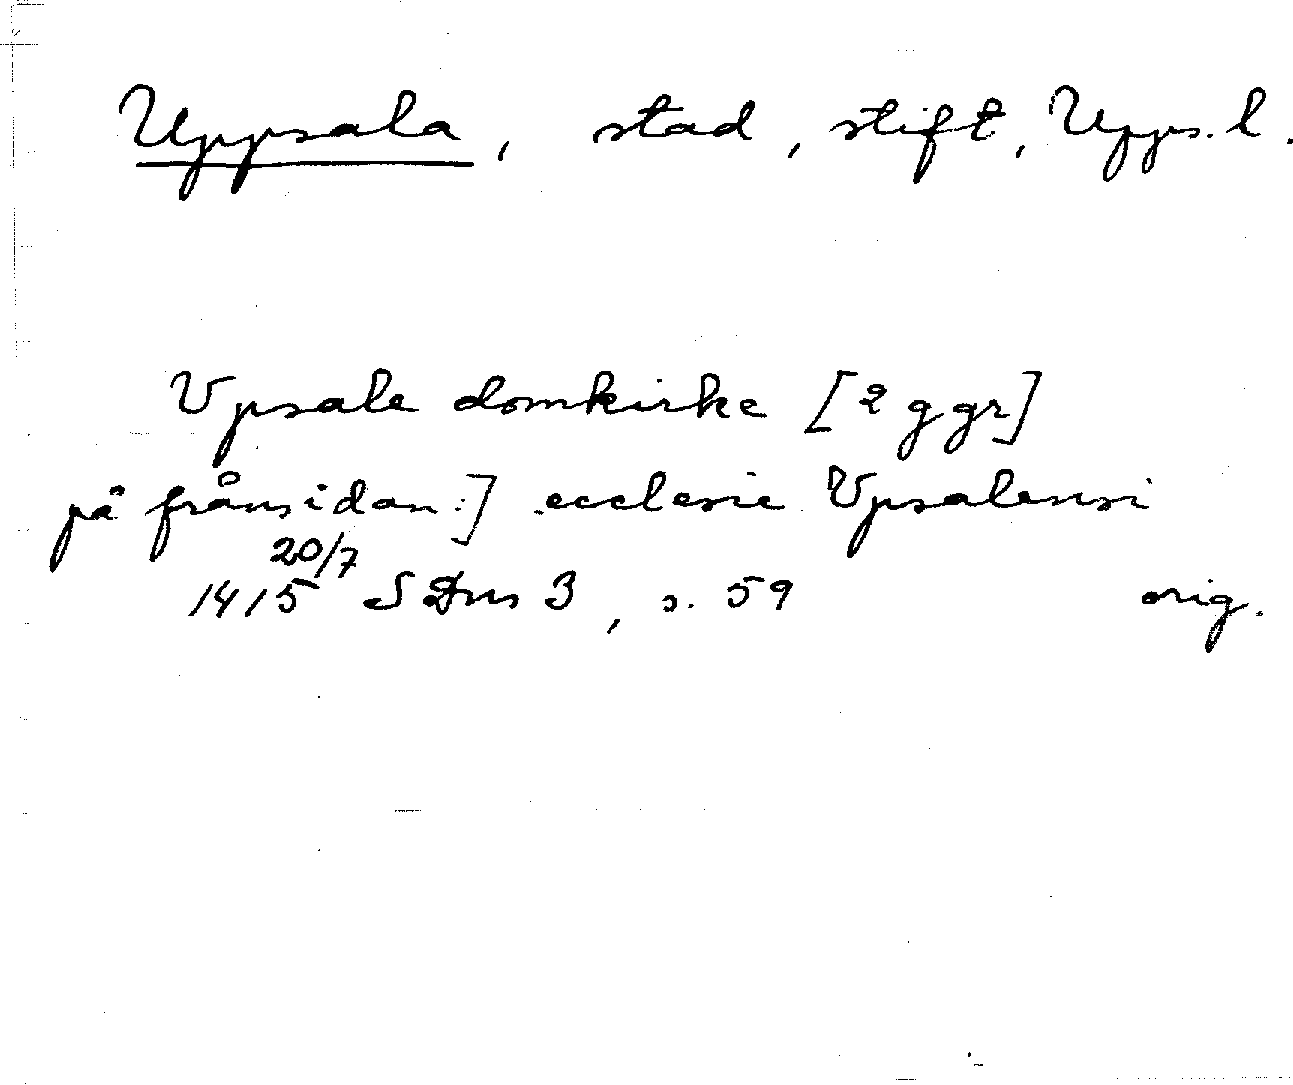 Uppsala, stad, stift, Upps. l.
Vpsale domkirke [2 ggr]
på frånsidan:] ecclesie Vpsalensi
20/7
1415 SDns 3, s. 59 orig.